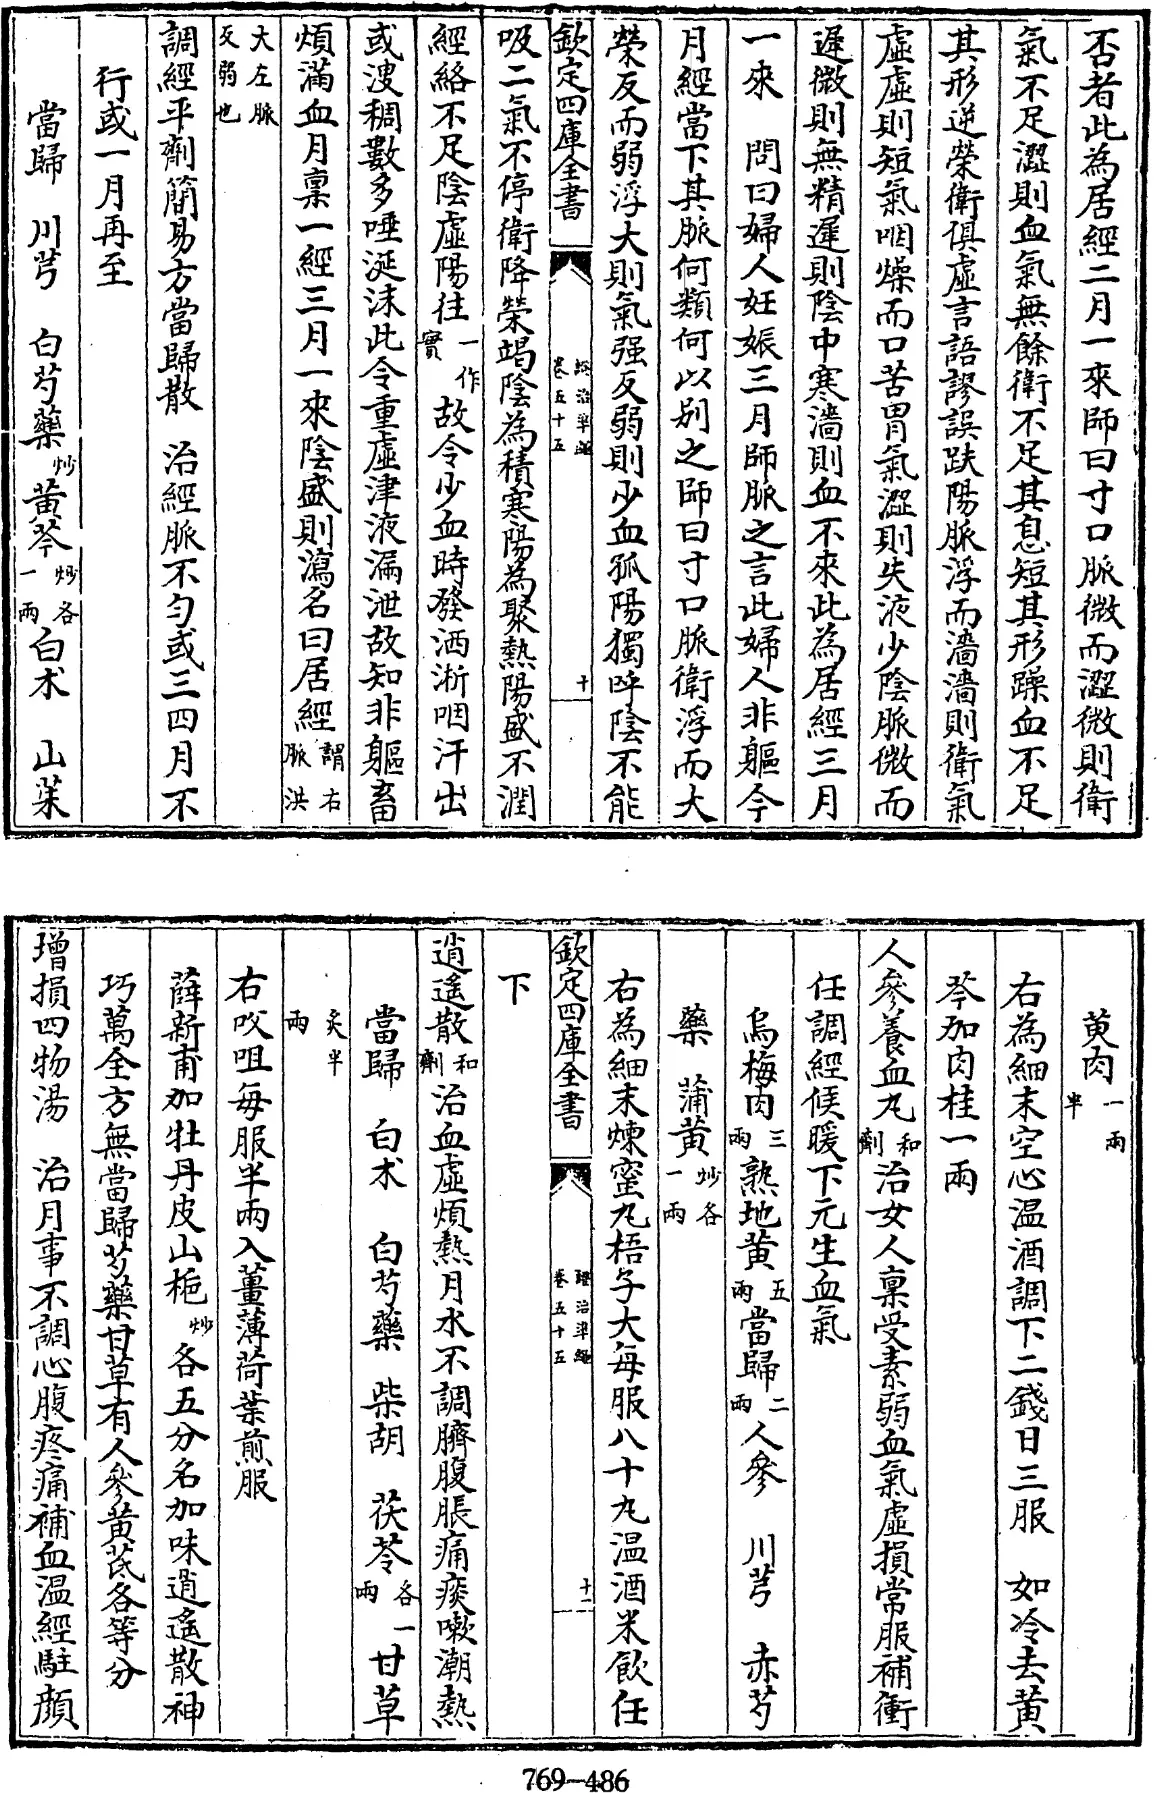 否者此為居經二月一來師曰寸口脈微而澀微則衛
氣不足澀則血氣無餘衛不足其息短其形躁血不足
其形逆榮衛俱虛言語謬誤趺陽脈浮而濇濇則衛氣
虛虛則短氣咽燥而口苦胃氣澀則失液少陰脈微而
遲微則無精遲則陰中寒濇則血不來此為居經三月
一來　問曰婦人妊娠三月師脈之言此婦人非軀今
月經當下其脈何類何以別之師曰寸口脈衛浮而大
榮反而弱浮大則氣强反弱則少血孤陽獨呼陰不能
欽定四庫全書　證治準繩　卷五十五　十
吸二氣不停衛降榮竭陰為積寒陽為聚熱陽盛不潤
經絡不足陰虛陽往一作實故令少血時發洒淅咽汗出
或溲稠數多唾涎沫此令重虛津液漏泄故知非軀畜
煩滿血月稟一經三月一來陰盛則瀉名曰居經謂右脈洪
大左脈反弱也
調經平劑簡易方當歸散　治經脈不勻或三四月不
行或一月再至
當歸　川芎　白芍藥炒黄芩炒各一兩白术　山茱
萸肉一兩半
右為細末空心温酒調下二錢日三服　如冷去黄
芩加肉桂一兩
人參養血丸和劑治女人稟受素弱血氣虛損常服補衝
任調經候暖下元生血氣
烏梅肉三兩熟地黄五兩當歸二兩人參　川芎　赤芍
藥　蒲黄炒各一兩
右為細末煉蜜丸梧子大每服八十丸温酒米飲任
欽定四庫全書　證治準繩　卷五十五　十一
下
逍遙散和劑治血虛煩熱月水不調臍腹脹痛痰嗽潮熱
當歸　白术　白芍藥　柴胡　茯苓各一兩甘草
炙半兩
右㕮咀每服半兩入薑薄荷葉煎服
薛新甫加牡丹皮山梔炒各五分名加味逍遙散神
巧萬全方無當歸芍藥甘草有人參黄芪各等分
增損四物湯　治月事不調心腹疼痛補血温經駐顔
769—486